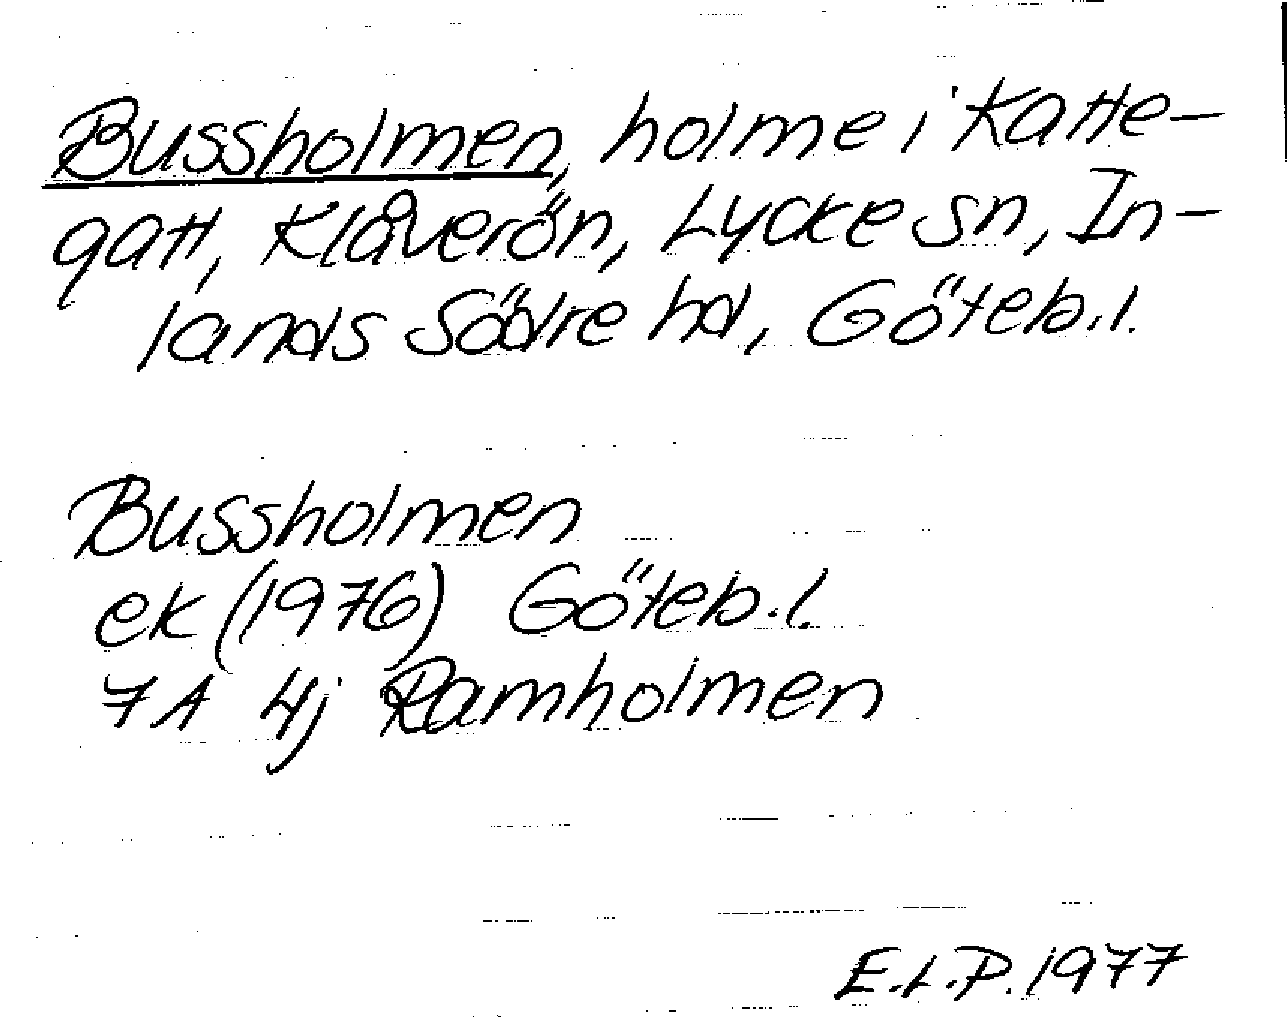 Bussholmen, holme i Katte-
gatt, Klåverön, Lycke sn, In-
lands Södre hd, Göteb.l.
Bussholmen
ek (1976) Göteb.l.
7A 4j Ramholmen
E.L.P. 1977